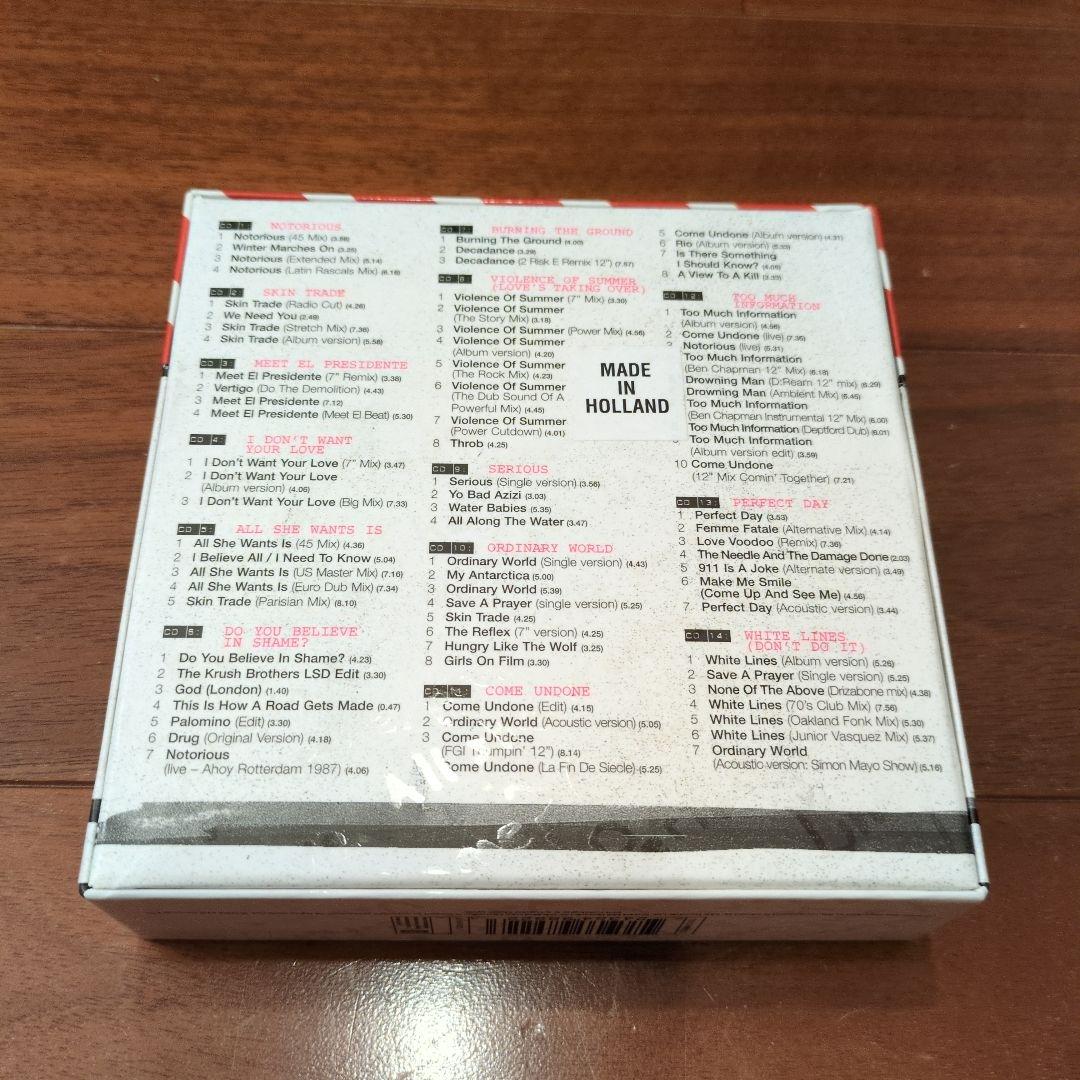 CD 1: NOTORIOUS
1 Notorious (45 Mix) (3.58)
2 Winter Marches On (3.25)
3 Notorious (Extended Mix) (5.14)
4 Notorious (Latin Rascals Mix) (6.18)
CD 2: SKIN TRADE
1 Skin Trade (Radio Cut) (4.26)
2 We Need You (2.49)
3 Skin Trade (Stretch Mix) (7.36)
4 Skin Trade (Album version) (5.58)
CD 3: MEET EL PRESIDENTE
1 Meet El Presidente (7" Remix) (3.38)
2 Vertigo (Do The Demolition) (4.43)
3 Meet El Presidente (7.12)
4 Meet El Presidente (Meet El Beat) (5.30)
CD 4: I DON'T WANT
YOUR LOVE
1 I Don't Want Your Love (7" Mix) (3.47)
2 I Don't Want Your Love
(Album version) (4.06)
3 I Don't Want Your Love (Big Mix) (7.33)
CD 5: ALL SHE WANTS IS
1 All She Wants Is (45 Mix) (4.36)
2 I Believe All / I Need To Know (5.04)
3 All She Wants Is (US Master Mix) (7.16)
4 All She Wants Is (Euro Dub Mix) (7.34)
5 Skin Trade (Parisian Mix) (8.10)
CD 6: DO YOU BELIEVE
IN SHAME?
1 Do You Believe In Shame? (4.23)
2 The Krush Brothers LSD Edit (3.30)
3 God (London) (1.40)
4 This Is How A Road Gets Made (0.47)
5 Palomino (Edit) (3.30)
6 Drug (Original Version) (4.18)
7 Notorious
(live – Ahoy Rotterdam 1987) (4.06)
CD 7: BURNING THE GROUND
1 Burning The Ground (4.00)
2 Decadance (3.29)
3 Decadance (2 Risk E Remix 12") (7.57)
CD 8: VIOLENCE OF SUMMER
(LOVE'S TAKING OVER)
1 Violence Of Summer (7" Mix) (3.30)
2 Violence Of Summer
(The Story Mix) (3.18)
3 Violence Of Summer (Power Mix) (4.56)
4 Violence Of Summer
(Album version) (4.20)
5 Violence Of Summer
(The Rock Mix) (4.23)
6 Violence Of Summer
(The Dub Sound Of A
Powerful Mix) (4.45)
7 Violence Of Summer
(Power Cutdown) (4.01)
8 Throb (4.25)
CD 9: SERIOUS
1 Serious (Single version) (3.56)
2 Yo Bad Azizi (3.03)
3 Water Babies (5.35)
4 All Along The Water (3.47)
CD 10: ORDINARY WORLD
1 Ordinary World (Single version) (4.43)
2 My Antarctica (5.00)
3 Ordinary World (5.39)
4 Save A Prayer (single version) (5.25)
5 Skin Trade (4.25)
6 The Reflex (7" version) (4.25)
7 Hungry Like The Wolf (3.25)
8 Girls On Film (3.30)
CD 11: COME UNDONE
1 Come Undone (Edit) (4.15)
2 Ordinary World (Acoustic version) (5.05)
3 Come Undone
(FGI Thumpin' 12") (8.14)
Come Undone (La Fin De Siecle) (5.25)
5 Come Undone (Album version) (4.31)
6 Rio (Album version) (5.33)
7 Is There Something
I Should Know? (4.05)
8 A View To A Kill (3.33)
CD 12: TOO MUCH
INFORMATION
1 Too Much Information
(Album version) (4.56)
2 Come Undone (live) (7.35)
Notorious (live) (5.31)
Too Much Information
(Ben Chapman 12" Mix) (6.18)
Drowning Man (D:Ream 12" mix) (6.29)
Drowning Man (Ambient Mix) (5.45)
Too Much Information
(Ben Chapman Instrumental 12" Mix) (6.00)
Too Much Information (Deptford Dub) (6.01)
Too Much Information
(Album version edit) (3.59)
10 Come Undone
(12" Mix Comin' Together) (7.21)
MADE
IN
HOLLAND
CD 13: PERFECT DAY
1 Perfect Day (3.53)
2 Femme Fatale (Alternative Mix) (4.14)
3 Love Voodoo (Remix) (7.36)
4 The Needle And The Damage Done (2.03)
5 911 Is A Joke (Alternate version) (3.49)
6 Make Me Smile
(Come Up And See Me) (4.56)
7 Perfect Day (Acoustic version) (3.44)
CD 14: WHITE LINES
(DON'T DO IT)
1 White Lines (Album version) (5.26)
2 Save A Prayer (Single version) (5.25)
3 None Of The Above (Drizabone mix) (4.38)
4 White Lines (70's Club Mix) (7.56)
5 White Lines (Oakland Fonk Mix) (5.30)
6 White Lines (Junior Vasquez Mix) (5.37)
7 Ordinary World
(Acoustic version: Simon Mayo Show) (5.16)